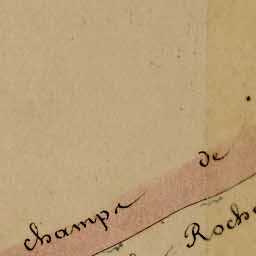 champs de
Roche